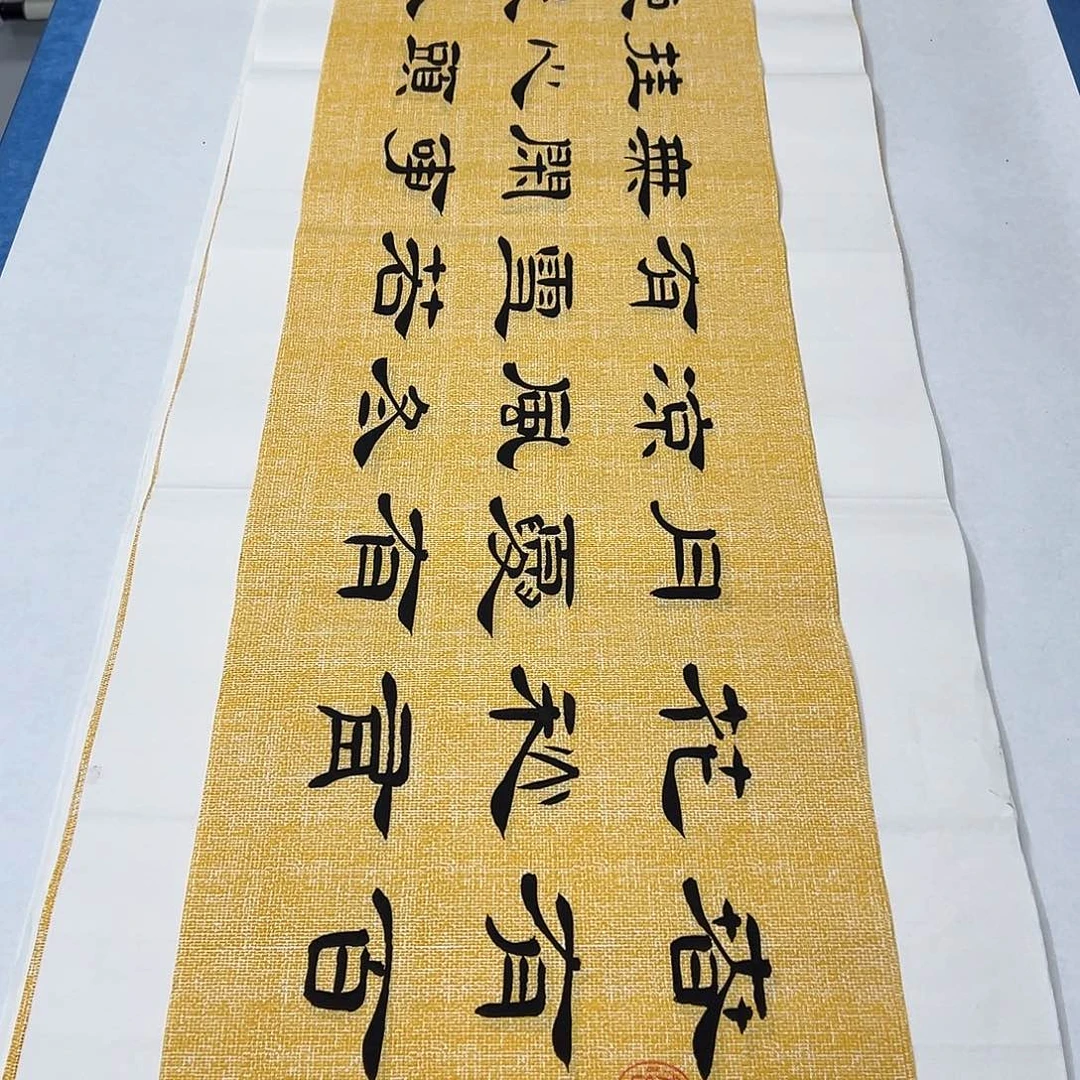 春有百
花秋有
月夏有
涼風冬
有雪若
無閑事
挂心頭